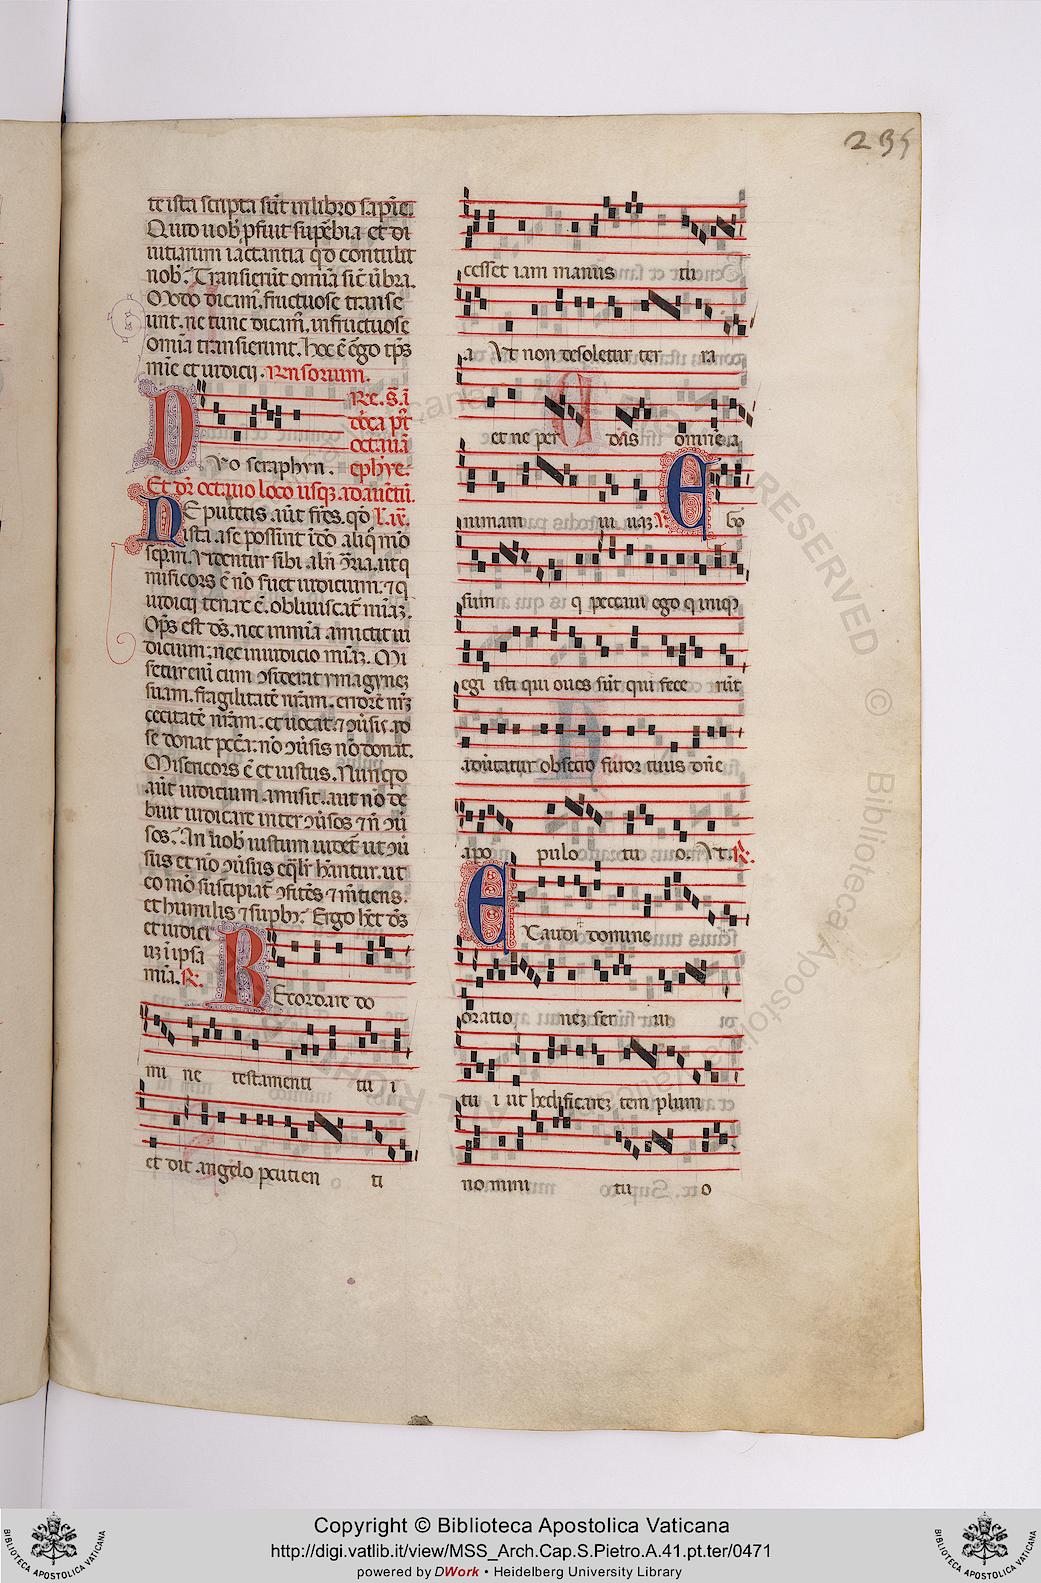 235
te ista scripta sūt in libro sapīe.
Quid nob̓ pfuit supbia et di
uitiarum iactantia qd contulit
nob̓. Transierūt omīa sic ūbra.
Modo dicam̄. fructuose transe
unt. ne tunc dicam̄. infructuose
omīa transierunt. hoc ē ego tp̄s
mīe et iudicij. Rn̄sorium.
Re. s̄. ī
dn̄ca pt̄
octauā
Duo seraphyn. ephye.
Et dr̄ octauo loco usq; ad auētū.
NE putetis aūt frēs. qd L. ix.
ista a se possint ī do aliq mō
separi. Videntur sibi aln̄ ɔ̄ria. ut q
misicors ē nō suet iudicium. ⁊ q
iudicij tenax ē. obliuiscat̄ mīaȝ.
Op̄s est ds̄. nec in mīa amictit iu
dicium. nec in iudicio mīaȝ. Mi
setur enī cum ɔsiderat ymagyneȝ
suam. fragilitatē nr̄am. errorē nr̄ȝ
cecitatē nr̄am. et uocat. ⁊ ɔūsis ad
se donat pccā. nō ɔūsis nō donat.
Misericors ē et iustus. Nunqd
aūt iudicium amisit. aut nō de
buit iudicare inter ɔūsos ⁊ n̄ ɔū
sos. An uob̓ iustum uidet̄ ut ɔū
sus et nō ɔūsus eqlr̄ hn̄antur. ut
eo mō suscipiat̄ ɔfitēs ⁊ m̄tiens.
et humilis ⁊ supb̓. Ergo hēt ds̄
et iudici
uȝ ī ipsa
mīa. R̄.
REcordare do
mi ne testamenti tu i
et dic angelo pcutien ti
cesset iam manus tu
a Vt non desoletur ter ra
et ne per das omnē a
nimam ui uaȝ R̄. EGo
sum q peccaui ego q iniq
egi isti qui oues sūt qui fece rūt
aduertatur obsecro furor tuus dn̄e
a po pulo tu o. Vt. R̄.
EXaudi domine
oratio neȝ ser ui
tu i ut hedificareȝ templum
nomini tu o
Copyright © Biblioteca Apostolica Vaticana
http://digi.vatlib.it/view/MSS_Arch.Cap.S.Pietro.A.41.pt.ter/0471
powered by DWork • Heidelberg University Library